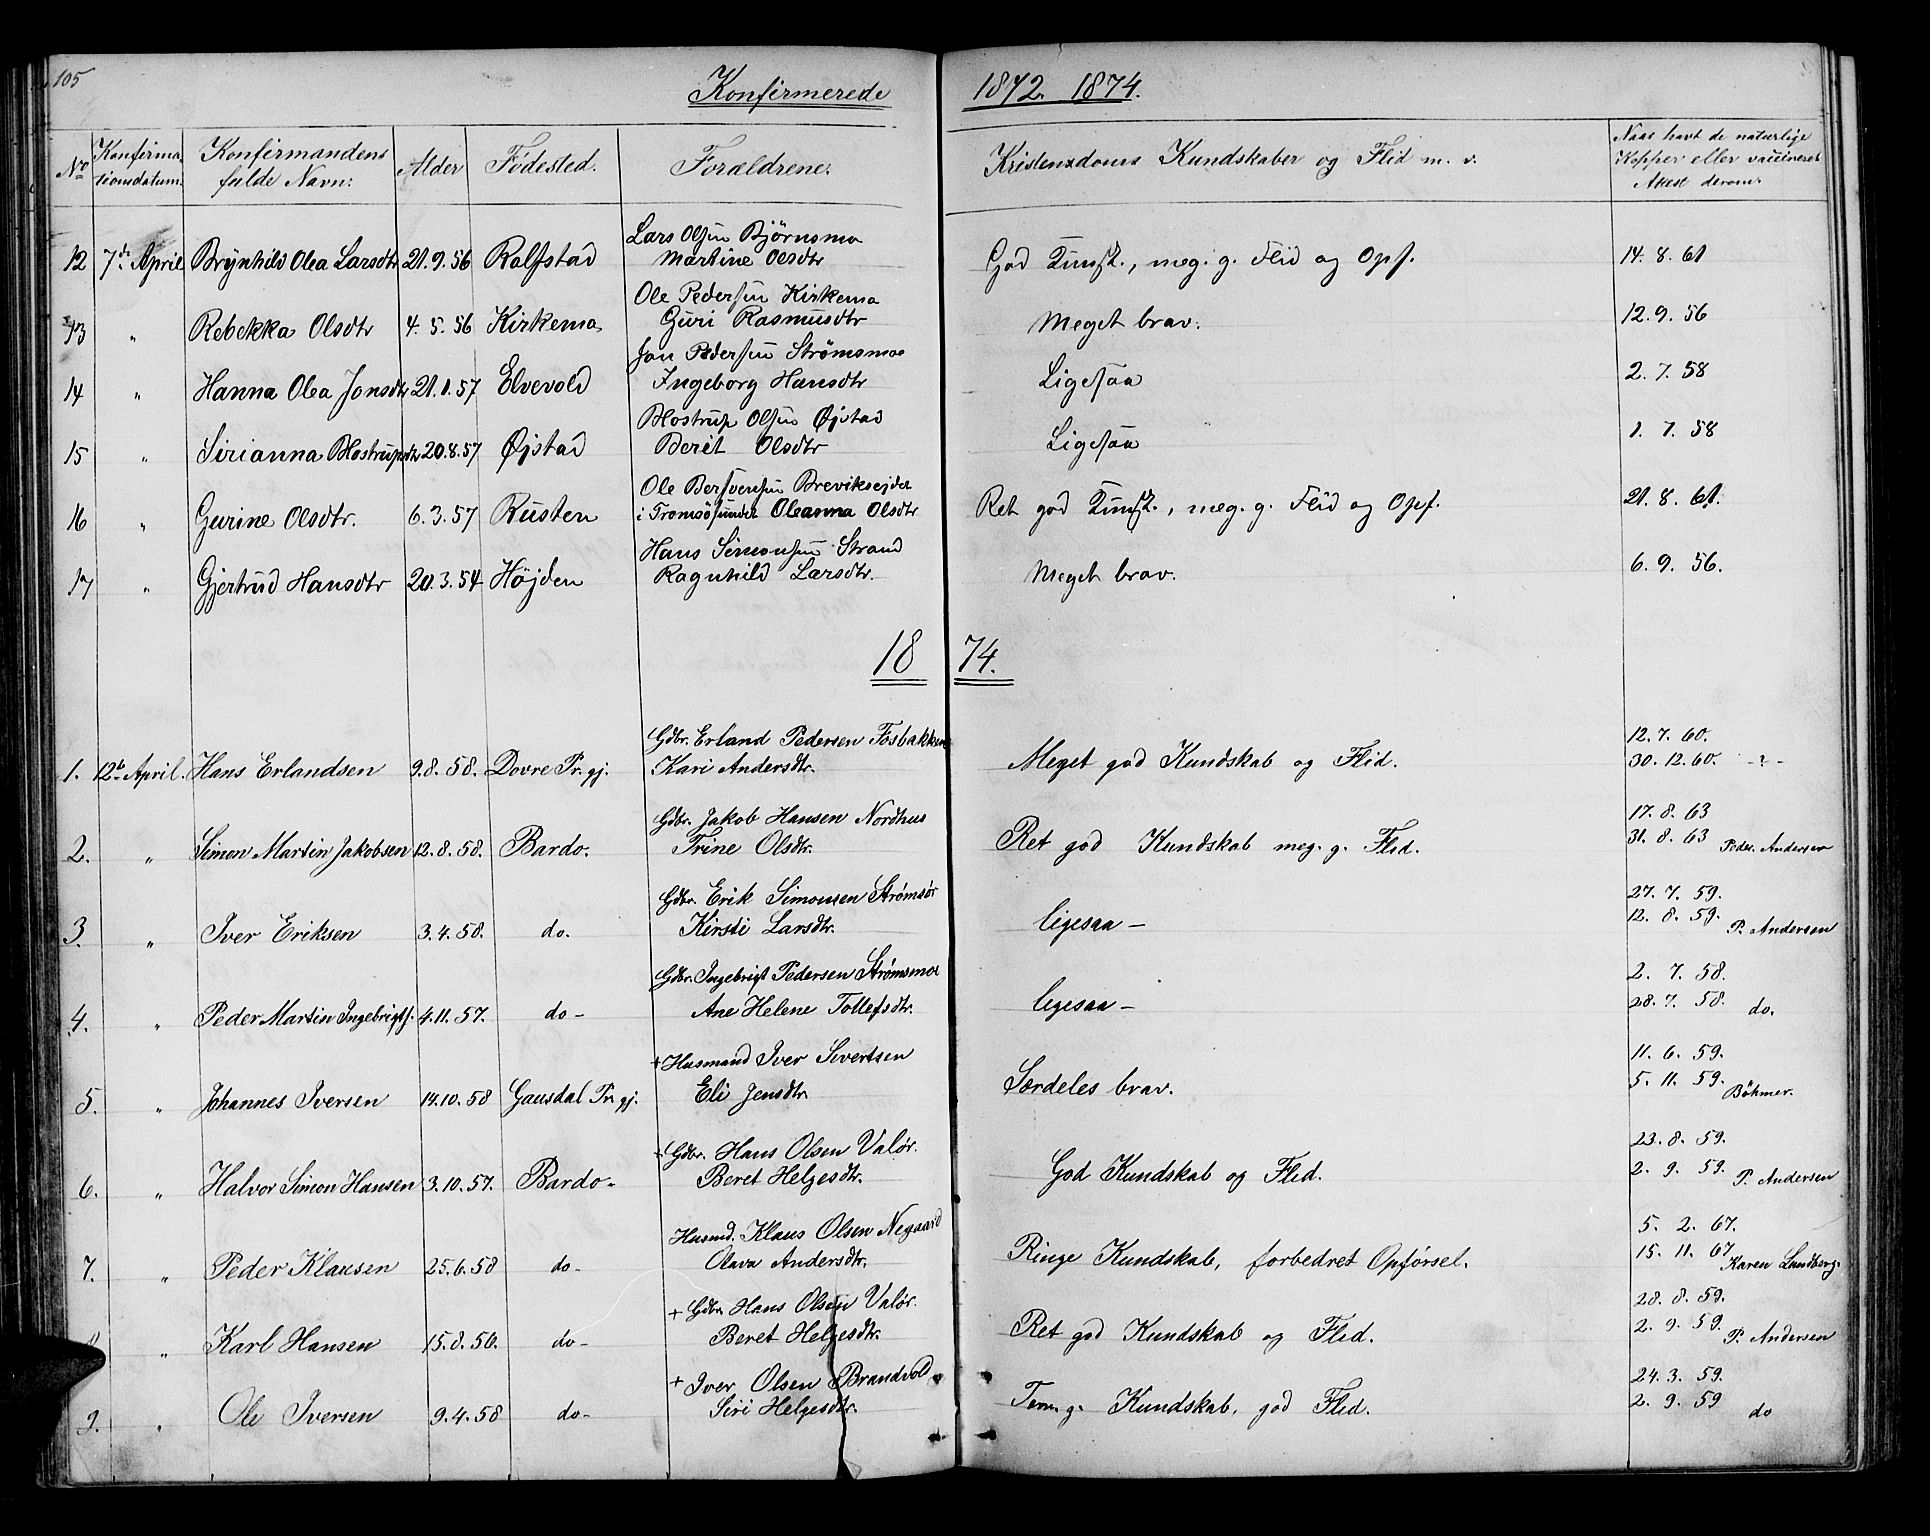 105
Konfirmerede 1872. 1874.
No Konfirmationsdatum. Konfirmandens fulde Navn: Alder Fødested. Forældrene. Kristendoms Kundskaber og Flid m. v. Naar havt de naturlige Kopper eller vaccineret Atest derom.
Lars Olsen Bjørnsmo
12 7de April Brynhild Olea Larsdtr 21.9.56 Rolfstad Martine Olsdtr God Kunsk., meg. g. Flid og Opf. 14. 8. 61
Ole Pedersen Kirkemo
13 " Rebekka Olsdtr 4.5.56 Kirkemo Guri Rasmusdtr Meget brav. 12. 9. 56
Jon Pedersen Strømsmoe
14 " Hanna Olea Jonsdtr 21.1.57 Elvevold Ingeborg Hansdtr Ligesaa 2. 7. 58
Mostrup Olsen Øjstad
15 " Sirianna Mostrupsdtr 20.8.57 Øjstad Berit Olsdtr Ligesaa 1. 7. 58
Ole Bersvensen Breviksejdet
16 " Gurine Olsdtr. 6.3.57 Rusten i Tromsøsundet Oleanna Olsdtr Ret god Kunsk., meg. g. Flid og Opf. 21. 8. 61.
Hans Simonsen Strand
17 " Gjertrud Hansdtr 20.3.54 Højden Ragnhild Larsdtr. Meget brav. 6. 9. 56.
1874.
Gdbr. Erland Pedersen Fosbakken 12. 7. 60.
1. 12te April. Hans Erlandsen 9.8.58. Dovre Pr.gj. Kari Andersdtr. Meget god Kundskab og Flid. 30. 12. 60. -?-
Gdbr. Jakob Hansen Nordhus 17. 8. 63
2. " Simon Martin Jakobsen 12.8.58. Bardo. Trine Olsdtr. Ret god Kundskab meg. g. Flid. 31. 8. 63 Peder Andersen
Gdbr. Erik Simonsen Strømsør 27. 7. 59.
3. " Iver Eriksen 3.4.58. do. Kirsti Larsdtr. ligesaa - 12. 8. 59. P. Andersen
Gdbr. Ingebrigt Pedersen Strømsmoe 2. 7. 58.
4. " Peder Martin Ingebrigts. 4.11.57. do- Ane Helene Tollefsdtr. ligesaa - 28. 7. 58. do.
+ Husmand Iver Sivertsen 11. 6. 59.
5. " Johannes Iversen 14.10.58 Gausdal Pr.gj. Eli Jensdtr. Særdeles brav. 5. 11. 59. Böhmer.
+ Gdbr. Hans Olsen Valør. 23. 8. 59.
6. " Halvor Simon Hansen 3.10.57. Bardo- Beret Helgesdtr. God Kundskab og Flid. 2. 9. 59. P. Andersen
Husmd. Klaus Olsen Negaard 5. 2. 67.
7. " Peder Klausen 25.6.58 do- Olava Andersdtr. Ringe Kundskab, forbedret Opførsel. 15. 11. 67 Karen Lundberg.
+ Gdbr. Hans Olsen Valør. 28. 8. 59.
" Karl Hansen 15.8.56. do- Beret Helgesdtr. Ret god Kundskab og Flid. 2. 9. 59. P. Andersen
+ Iver Olsen Brandvold 24. 3. 59.
9. " Ole Iversen 9.4.58 do- Siri Helgesdtr. Tem. g. Kundskab, god Flid. 2. 9. 59 do